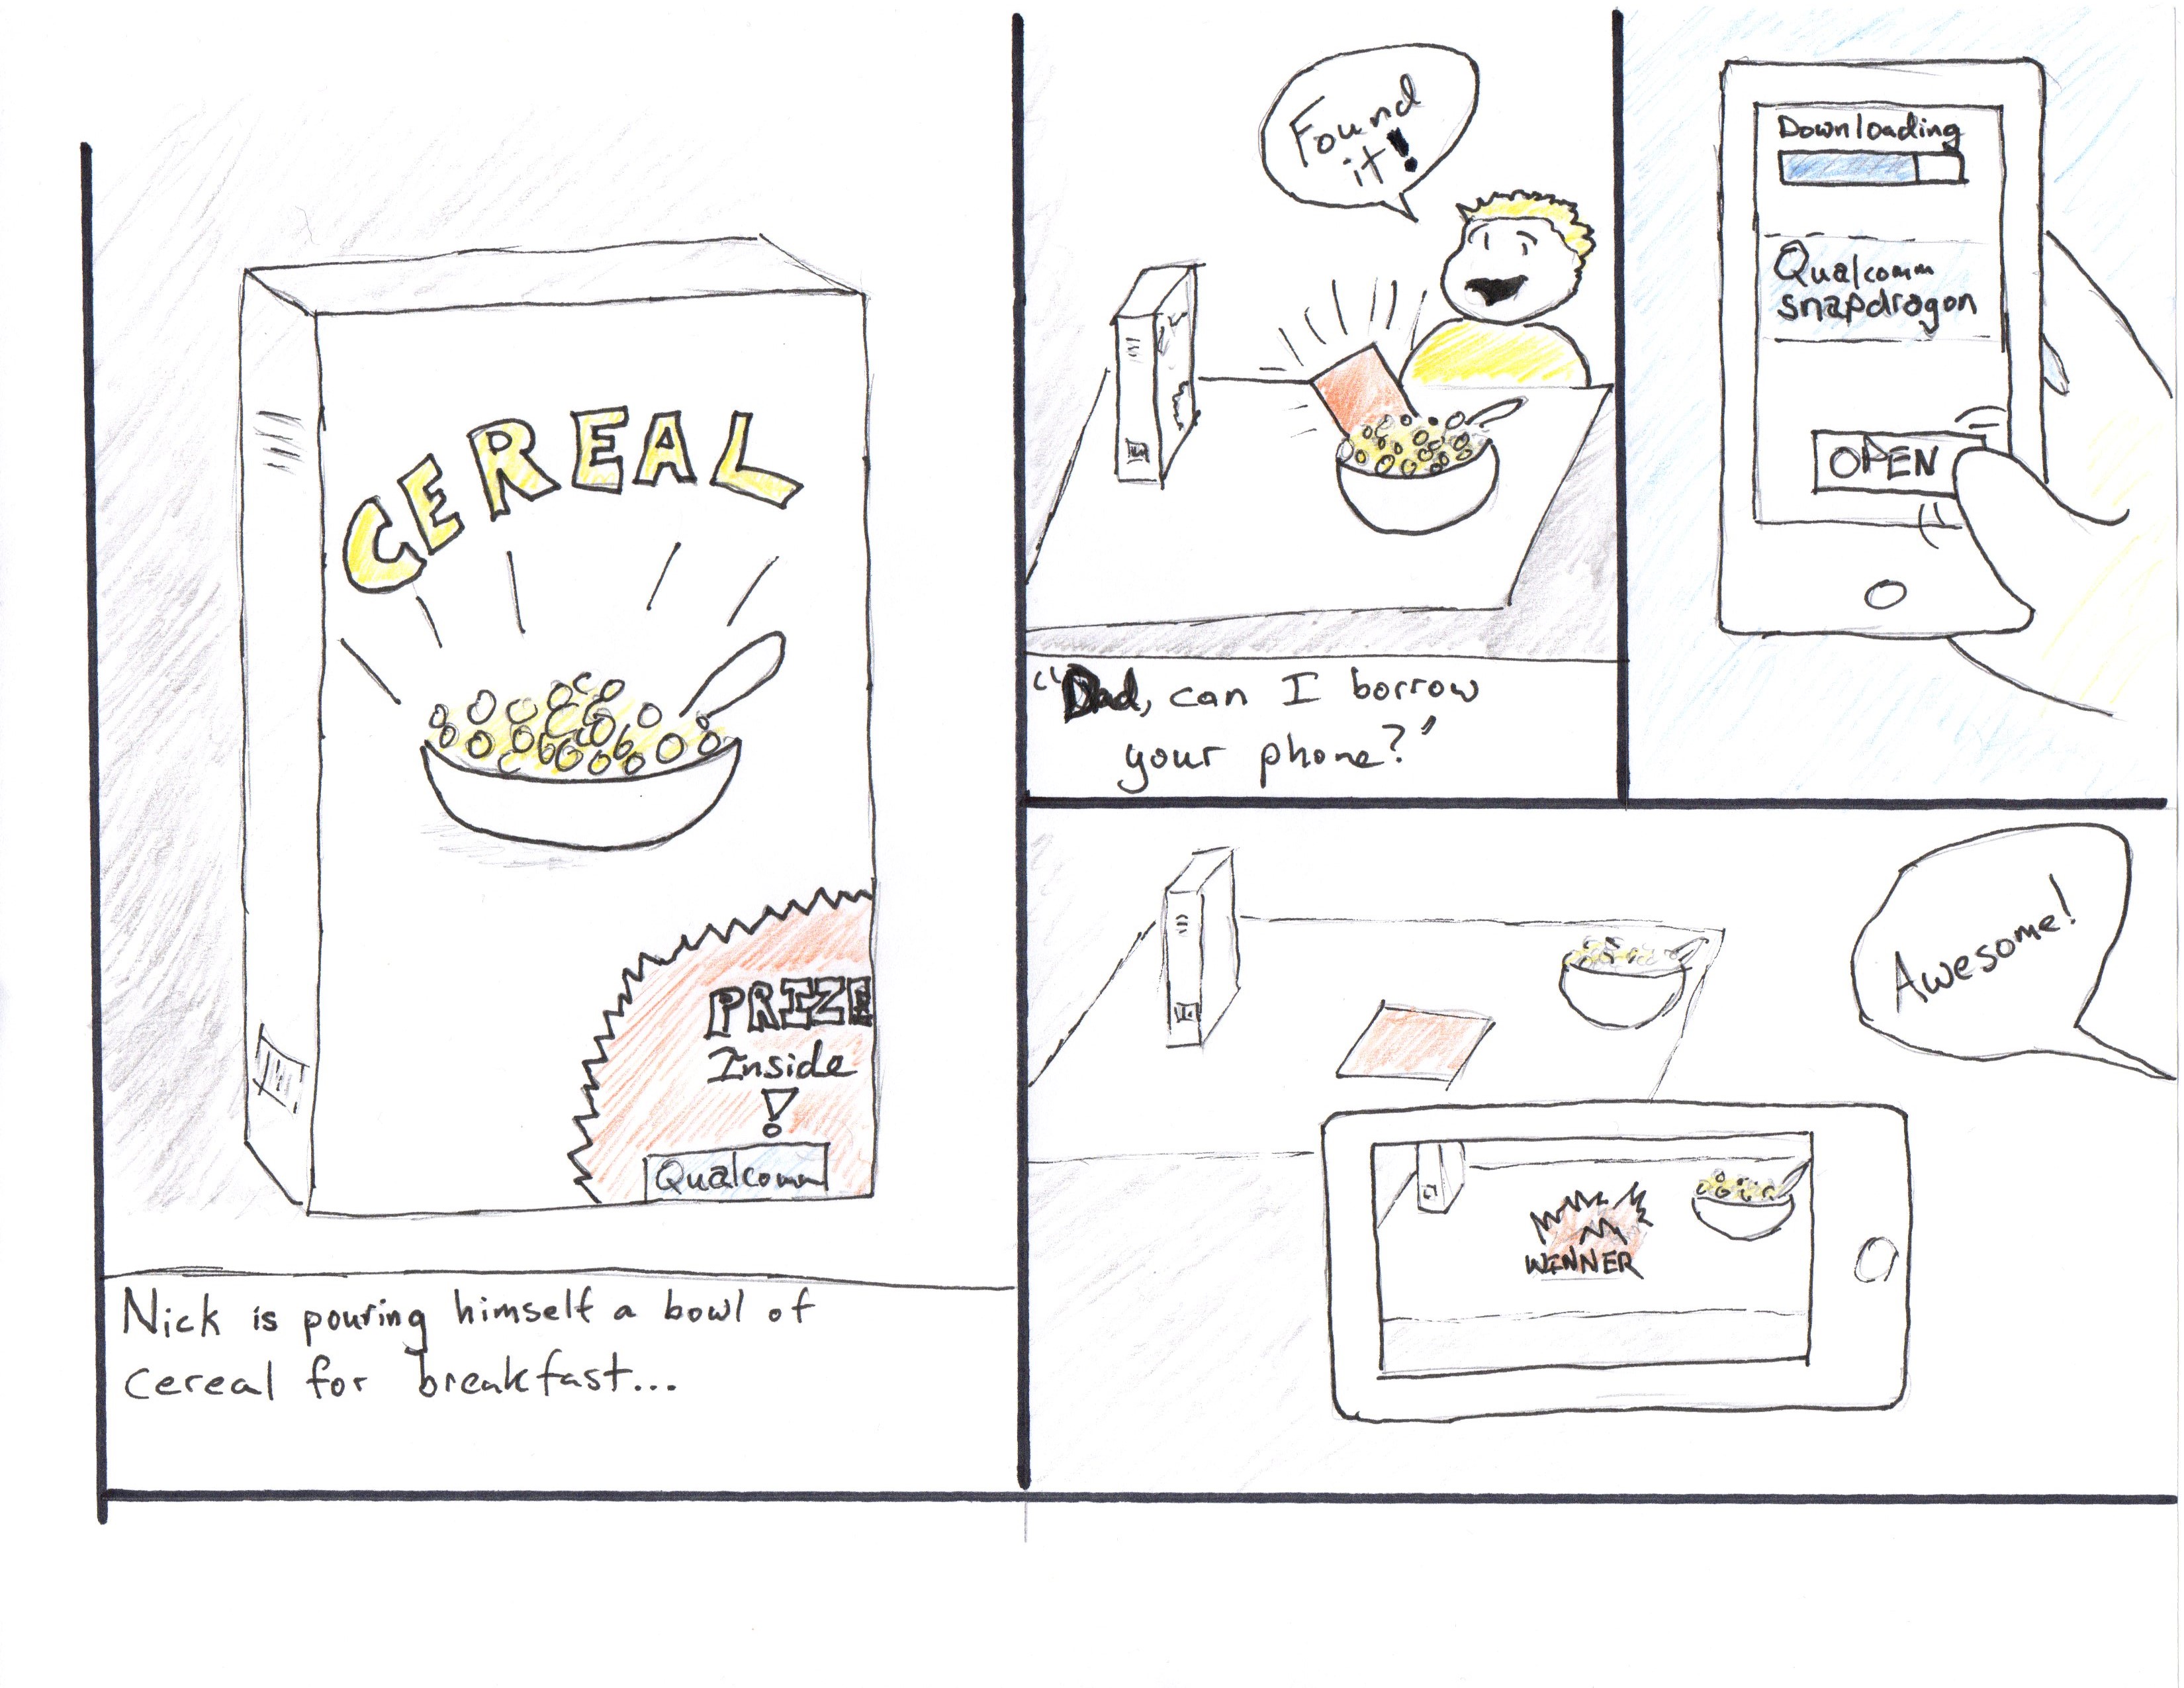 CEREAL
PRIZE
Inside
!
Qualcomm
Nick is pouring himself a bowl of
cereal for breakfast...
Found
it!
"Dad, can I borrow
your phone?"
Downloading
Qualcomm
snapdragon
OPEN
Awesome!
WINNER